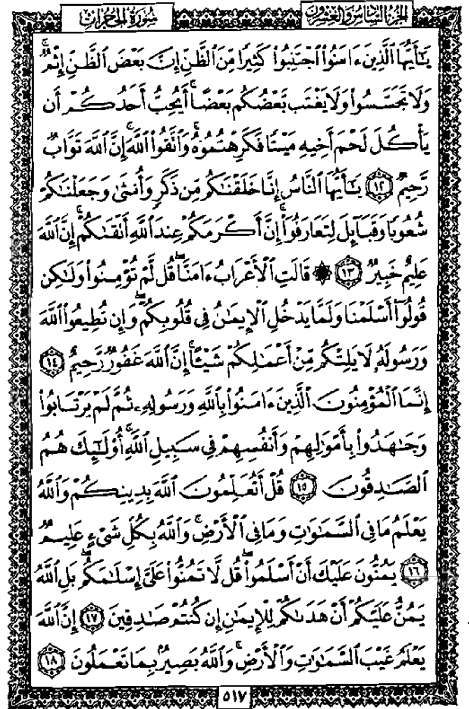 سُورَةُ الحُجُرَاتِ الجُزْءُ السَّادِسُ وَالعِشْرُونَ
يَٰٓأَيُّهَا ٱلَّذِينَ ءَامَنُوا۟ ٱجْتَنِبُوا۟ كَثِيرًا مِّنَ ٱلظَّنِّ إِنَّ بَعْضَ ٱلظَّنِّ إِثْمٌ ۖ
وَلَا تَجَسَّسُوا۟ وَلَا يَغْتَب بَّعْضُكُم بَعْضًا ۚ أَيُحِبُّ أَحَدُكُمْ أَن
يَأْكُلَ لَحْمَ أَخِيهِ مَيْتًا فَكَرِهْتُمُوهُ ۚ وَٱتَّقُوا۟ ٱللَّهَ ۚ إِنَّ ٱللَّهَ تَوَّابٌ
رَّحِيمٌ ١٢ يَٰٓأَيُّهَا ٱلنَّاسُ إِنَّا خَلَقْنَٰكُم مِّن ذَكَرٍ وَأُنثَىٰ وَجَعَلْنَٰكُمْ
شُعُوبًا وَقَبَآئِلَ لِتَعَارَفُوٓا۟ ۚ إِنَّ أَكْرَمَكُمْ عِندَ ٱللَّهِ أَتْقَىٰكُمْ ۚ إِنَّ ٱللَّهَ
عَلِيمٌ خَبِيرٌ ١٣ ۞ قَالَتِ ٱلْأَعْرَابُ ءَامَنَّا ۖ قُل لَّمْ تُؤْمِنُوا۟ وَلَٰكِن
قُولُوٓا۟ أَسْلَمْنَا وَلَمَّا يَدْخُلِ ٱلْإِيمَٰنُ فِى قُلُوبِكُمْ ۖ وَإِن تُطِيعُوا۟ ٱللَّهَ
وَرَسُولَهُۥ لَا يَلِتْكُم مِّنْ أَعْمَٰلِكُمْ شَيْـًٔا ۚ إِنَّ ٱللَّهَ غَفُورٌ رَّحِيمٌ ١٤
إِنَّمَا ٱلْمُؤْمِنُونَ ٱلَّذِينَ ءَامَنُوا۟ بِٱللَّهِ وَرَسُولِهِۦ ثُمَّ لَمْ يَرْتَابُوا۟
وَجَٰهَدُوا۟ بِأَمْوَٰلِهِمْ وَأَنفُسِهِمْ فِى سَبِيلِ ٱللَّهِ ۚ أُو۟لَٰٓئِكَ هُمُ
ٱلصَّٰدِقُونَ ١٥ قُلْ أَتُعَلِّمُونَ ٱللَّهَ بِدِينِكُمْ وَٱللَّهُ
يَعْلَمُ مَا فِى ٱلسَّمَٰوَٰتِ وَمَا فِى ٱلْأَرْضِ ۚ وَٱللَّهُ بِكُلِّ شَىْءٍ عَلِيمٌ
١٦ يَمُنُّونَ عَلَيْكَ أَنْ أَسْلَمُوا۟ ۖ قُل لَّا تَمُنُّوا۟ عَلَىَّ إِسْلَٰمَكُم ۖ بَلِ ٱللَّهُ
يَمُنُّ عَلَيْكُمْ أَنْ هَدَىٰكُمْ لِلْإِيمَٰنِ إِن كُنتُمْ صَٰدِقِينَ ١٧ إِنَّ ٱللَّهَ
يَعْلَمُ غَيْبَ ٱلسَّمَٰوَٰتِ وَٱلْأَرْضِ ۚ وَٱللَّهُ بَصِيرٌۢ بِمَا تَعْمَلُونَ ١٨
٥١٧